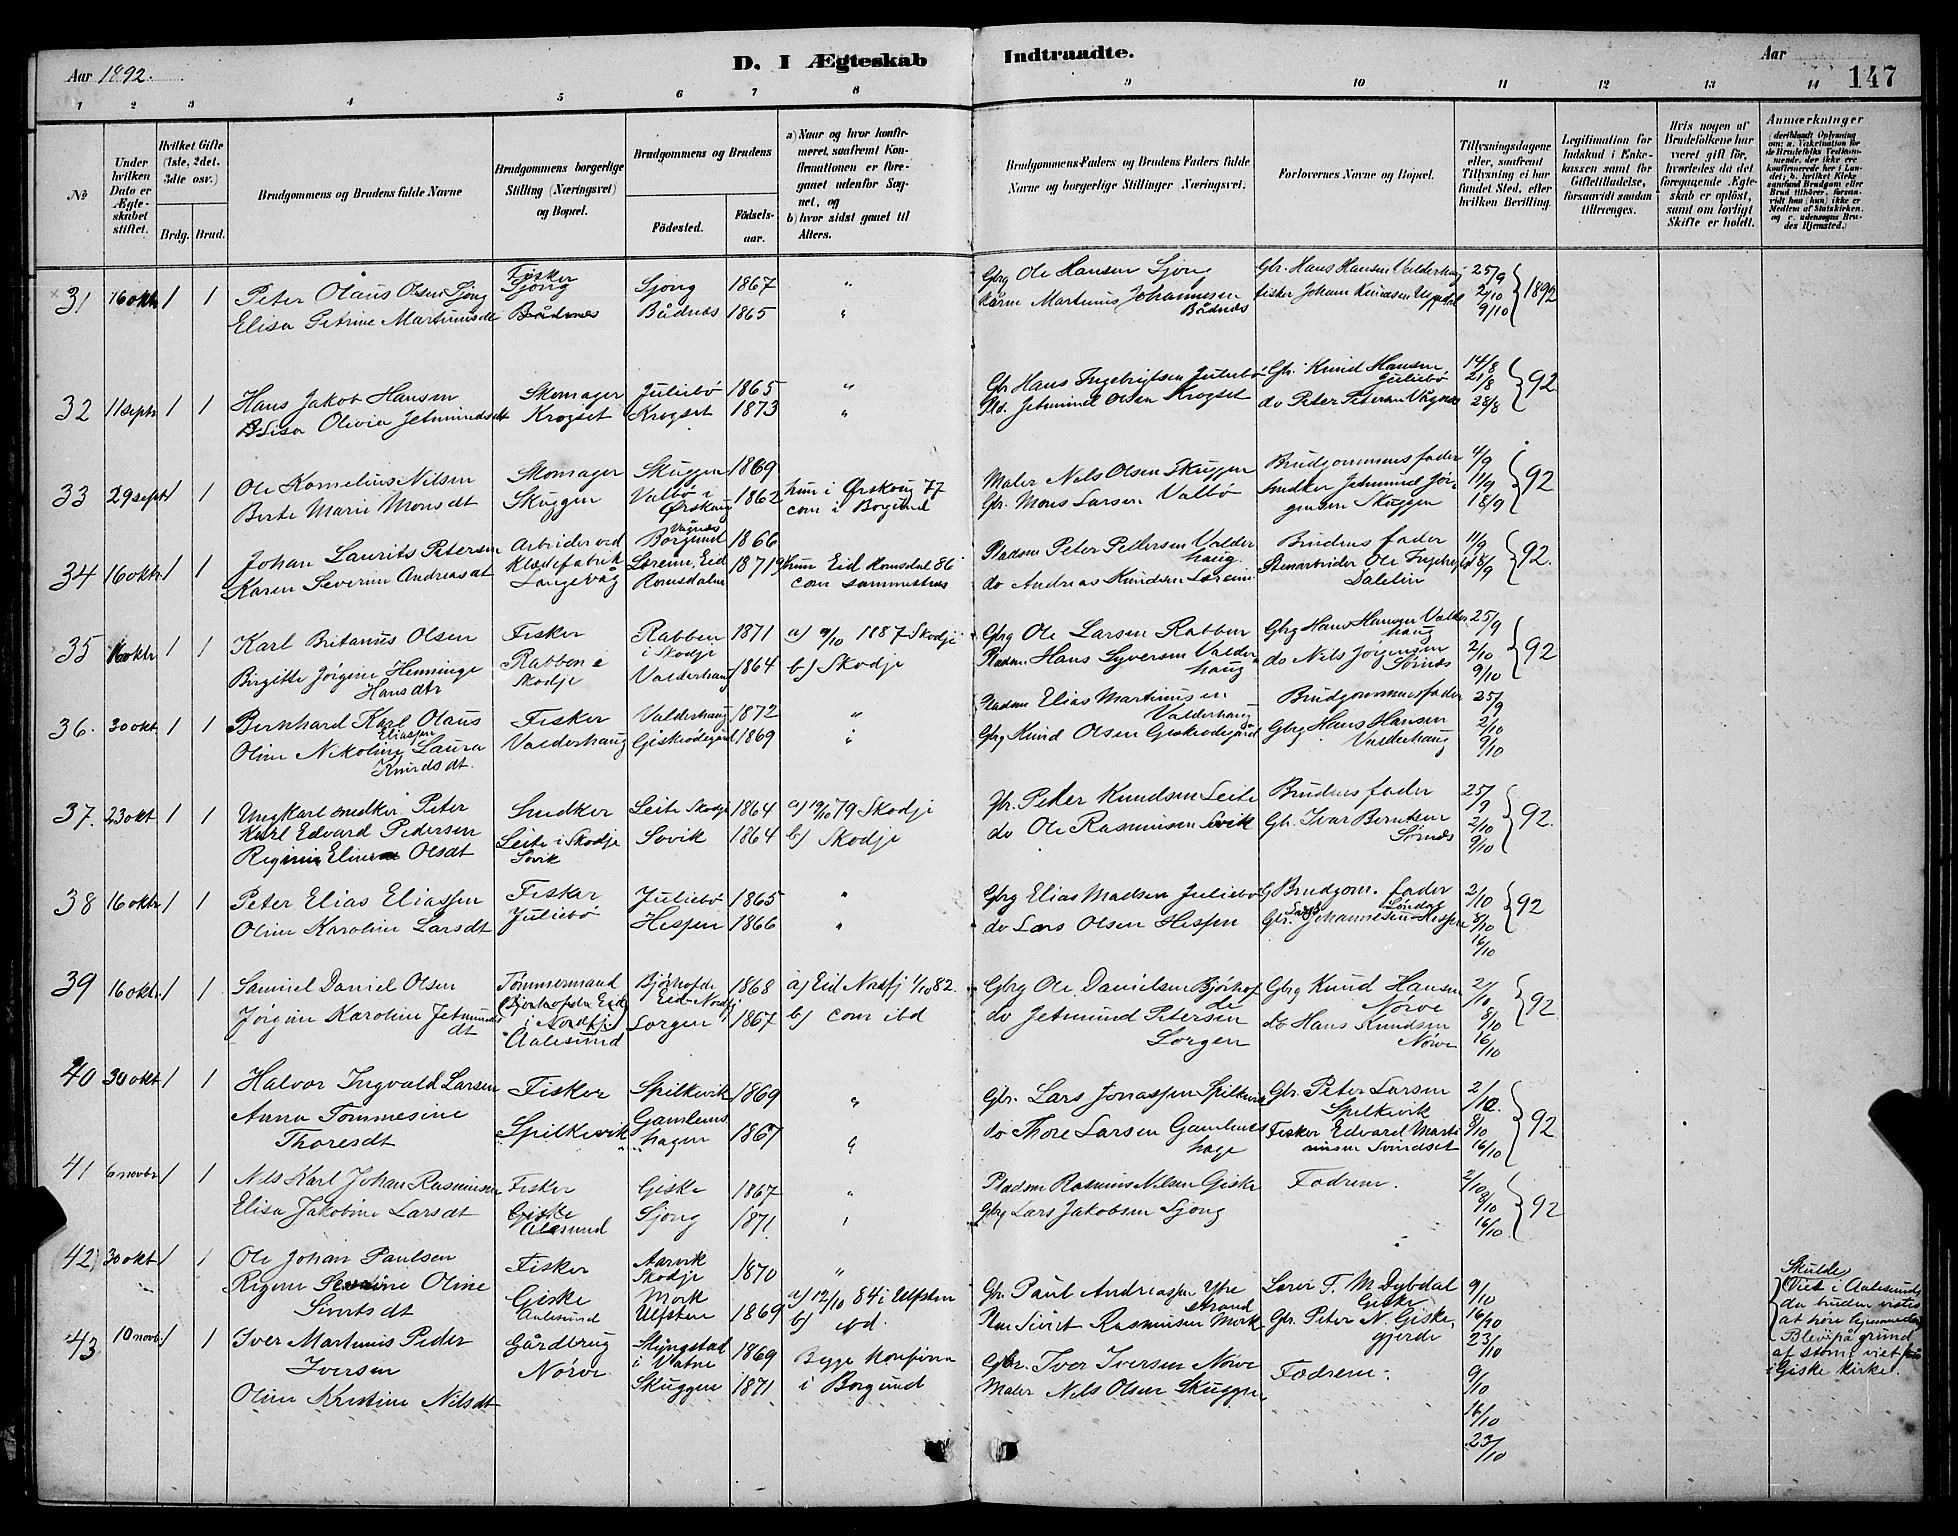 Aar 1892.
D. I Ægteskab Indtraadte.
Aar
147
1 2 3 4 5 6 7 8 9 10 11 12 13 14
№
Under hvilken Dato er Ægteskabet stiftet.
Hvilket Gifte (1ste, 2det, 3die osv.)
Brdg. Brud.
Brudgommens og Brudens fulde Navne
Brudgommens borgerlige Stilling (Næringsvei) og Bopæl.
Brudgommens og Brudens
Födested.
Födsels-aar.
a) Naar og hvor konfirmeret, saafremt Konfirmationen er foregaaet udenfor Sognet, og
b) hvor sidst gaaet til Alters.
Brudgommens Faders og Brudens Faders fulde Navne og borgerlige Stillinger Næringsvei.
Forlovernes Navne og Bopæl.
Tillysningsdagene eller, saafremt Tillysning ei har fundet Sted, efter hvilken Bevilling.
Legitimation for Indskud i Enkekassen samt for Giftetilladelse, forsaavidt saadan tiltrænges.
Hvis nogen af Brudefolkene har været gift för, hvorledes da det foregaaende Ægteskab er oplöst, samt om lovligt Skifte er holdt.
Anmærkninger
31 16 oktr 1 1 Peter Olaus Olsen Sjong Fisker Sjong Sjong 1867 " Gbrg Ole Hansen Sjong Gbr. Hans Hansen Valderhaug 25/9
Elisa Petrine Martinusdt Bådnes Bådnæs 1865 " Martinus Johannesen Bådnæs fisker Johan Knudsen 2/10 9/10 1892
32 11 septr 1 1 Hans Jakob Hansen Skomager Juliebø 1865 " Gbr Hans Ingebrigtsen Juliebø Gbr. Knud Hansen Juliebø 14/8 21/8
Elisa Olivia Jetmundsdt Krogset Krogset 1873 " Pls. Jetmund Olsen Krogset do Peter Petersen Vågnæs 28/8 92
33 29 septr 1 1 Ole Kornelius Nilsen Skomager Skuggen 1869 Maler Nels Olsen Skuggen Brudgommens fader 4/9
Berte Marie Monsdt Skuggen Valbø i Ørskoug 1862 hun i Ørskoug 77 com i Borgund Gbr. Mons Larsen Valbø Snedker Jetmund Jørgensen Skuggen 11/9 18/9 92
34 16 oktr 1 1 Johan Laurits Petersen Arbeider ved Klædefabrik Langevåg Vågnæs Borgund 1866 Pladsm Peter Pettersen Valderhaug Brudens fader 11/9
Karen Severine Andreasdt Løreim, Eid Romsdalen 1871 hun Eid Romsdal 86 com sammesteds do Andreas Knudsen Løreim Stenarbeider Ole Dalelin 18/9 92.
35 16 oktr 1 1 Karl Britanus Olsen Fisker Rabben i Skodje 1871 a) 9/10 1887 Skodje Gbrg Ole Larsen Rabben Gbrg Hans Hansen Valderhaug 25/9
Birgitte Jørgine Henninge Hansdtr Rabben i Skodje Valderhaug 1864 b) Skodje Pladsm Hans Syversen Valderhaug do Nils Jørgensen Sørnæs 2/10 9/10 92
36. 30 okt 1 1 Bernhard Karl Olaus Eliassen Fisker Valderhaug 1872 " Pladsm Elias Martinusen Valderhaug Brudgommens fader 25/9
Oline Nikoline Laura Knudsdt. Valderhaug Giskeødegård 1869 " Gbrg Knud Olsen Giskeødegård Gbrg Hans Hansen Valderhaug 2/10 9/10
37. 23 okt 1 1 Ungkarl snedker Peter Karl Edvard Pedersen Snedker Leite Skodje 1864 a) 19/10 79 Skodje Gbr. Peder Knudsen Leite Brudens fader 25/9
Regine Eline Olsdt Leite i Skodje Sovik Sovik 1864 b) Skodje do Ole Rasmusen Sovik Gbr. Ivar Berntsen Sørnæs 2/10 9/10 92.
38 16 oktr 1 1 Peter Elias Eliassen Fisker Juliebø 1865 " Gbrg Elias Madsen Juliebø Brudgom. fader 2/10
Oline Karoline Larsdt Juliebø Hessen 1866 " do Lars Olsen Hessen Gbr. Lars Johannesen Hessen 8/10 16/10 92
39 16 oktr. 1 1 Samuel Daniel Olsen Tømmermand Bjørhofde Eid-Nordfj 1868 a) Eid Nordfj 1/10 82. Gbrg Ole Danielsen Bjørhofde Gbrg Knud Hansen Nørve 2/10
Jørgine Karoline Jetmundsdt Bjørhofde Eid i Nordfj Aalesund Sorgen 1867 b) com ibd do Jetmund Petersen Sorgen do Hans Knudsen Nørve 8/10 16/10 92
40 30 okt 1 1 Halvor Ingvald Larsen Fisker Spilkevik 1869 " Gbr. Lars Jonassen Spilkevik Gbr. Peter Larsen Spilkevik 2/10
Anna Tommesine Thoresdt Spilkevik Gamlemshagen 1867 " do Thore Larsen Gamlemshage Fisker Edvard Martinusen Svindset 9/10 16/10 92
41 6 novbr 1 1 Nels Karl Johan Rasmusen Fisker Giske 1867 " Pladsm Rasmus Nilsen Giske Fædrene. 2/10
Elisa Jakobine Larsdt Giske Aalesund Sjong 1871 " Gbrg Lars Jakobsen Sjong 9/10 16/10 92
42 30 okt 1 1 Ole Johan Paulsen Fisker Aarvik Skodje 1870 " Gbr. Paul Andreassen Ytre strand Lærer T. M. Dybdal Giske 9/10
Regine Oline Sivertsdt Giske Aalesund Mork Ulfsten 1869 a) 12/10 84 i Ulfsten b) ibd. Sivert Rasmusen Mork Gbr. Peter N. Giskegjerde 16/10 23/10
Skulde Viet i Aalesund, da bruden vistes at høre hjemme der. Blev på grund af storm viet i Giske kirke.
43 10 novb. 1 1 Iver Martinus Peder Iversen Gårdbrug Nørve Slyngstad i Vatne 1869 Begge konfirm i Borgund Gbr. Iver Iversen Nørve Fædrene. 9/10
Oline Kristine Nilsdt Skuggen 1871 Maler Nels Olsen Skuggen 16/10 23/10